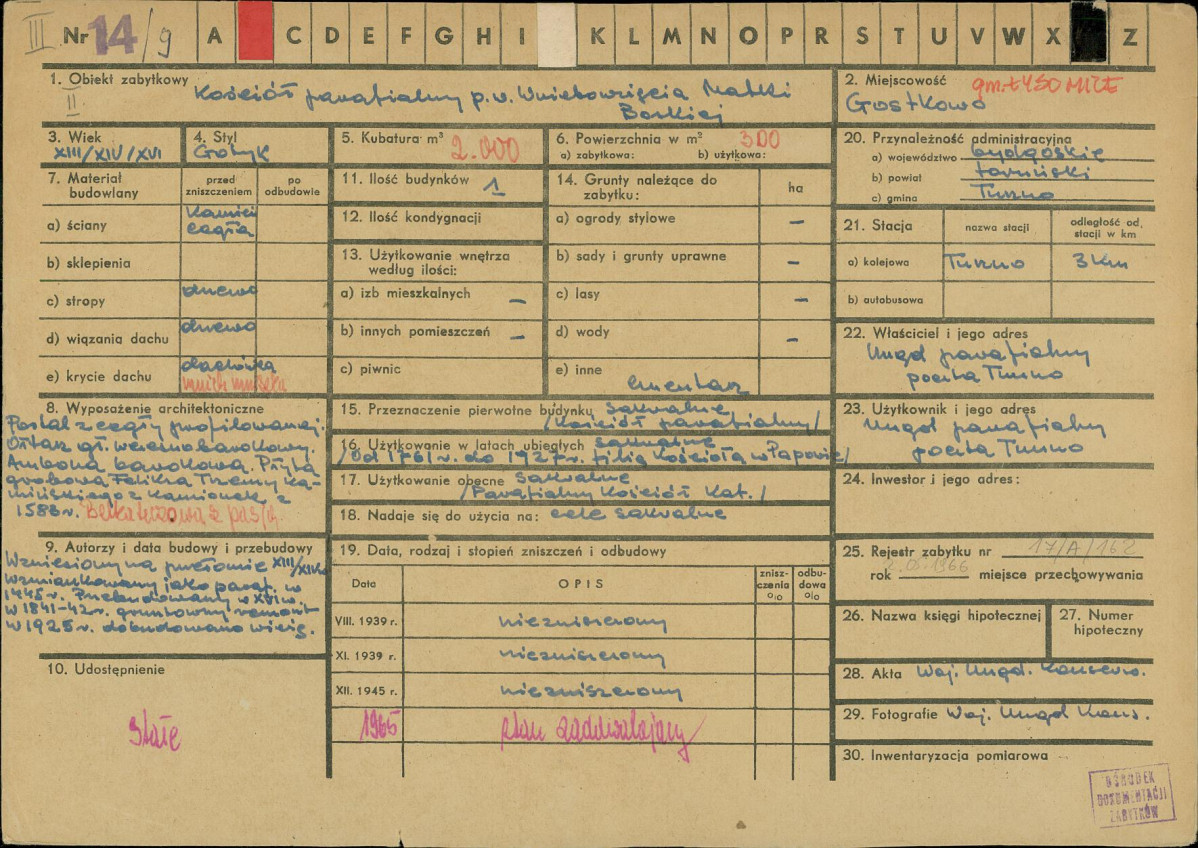 III Nr 14/9 A C D E F G H I K L M N O P R S T U V W X Z
1. Obiekt zabytkowy
II
Kościół parafialny p.w. Wniebowzięcia Matki
Boskiej
2. Miejscowość gm. ŁYSOMICE
Gostkowo
3. Wiek
XIII/XIV/XVI
4. Styl
Gotyk
5. Kubatura m³
2.000
6. Powierzchnia w m² 300
a) zabytkowa: b) użytkowa:
20. Przynależność administracyjna
a) województwo bydgoskie
b) powiat toruński
c) gmina Turzno
7. Materiał
budowlany
przed
zniszczeniem
po
odbudowie
a) ściany kamień
cegła
b) sklepienia
c) stropy drewno
d) wiązania dachu drewno
e) krycie dachu dachówka
mnich mniszka
11. Ilość budynków 1
12. Ilość kondygnacji
13. Użytkowanie wnętrza
według ilości:
a) izb mieszkalnych –
b) innych pomieszczeń –
c) piwnic
14. Grunty należące do
zabytku:
ha
a) ogrody stylowe –
b) sady i grunty uprawne –
c) lasy –
d) wody –
e) inne cmentarz
21. Stacja
nazwa stacji
odległość od
stacji w km
a) kolejowa Turzno 3 km
b) autobusowa
22. Właściciel i jego adres
Urząd parafialny
poczta Turzno
8. Wyposażenie architektoniczne
Portal z cegły profilowanej.
Ołtarz gł. wczesnobarokowy.
Ambona barokowa. Płyta
grobowa Feliksa Trzemy Ka-
mińskiego z Kamionek, z
1583 r. Belka tęczowa z pasją
15. Przeznaczenie pierwotne budynku sakralne
/Kościół parafialny/
16. Użytkowanie w latach ubiegłych sakralne
/Od 1761 r. do 1927 r. filia Kościoła w Papowie/
17. Użytkowanie obecne sakralne
/Parafialny Kościół Kat./
18. Nadaje się do użycia na: cele sakralne
23. Użytkownik i jego adres
Urząd parafialny
poczta Turzno
24. Inwestor i jego adres:
9. Autorzy i data budowy i przebudowy
Wzniesiony na przełomie XIII/XIV w.
Wzmiankowany jako paraf. w
1445 r. Przebudowany w XVI w.
W 1841-42 r. gruntowny remont
W 1925 r. dobudowano wieżę.
19. Data, rodzaj i stopień zniszczeń i odbudowy
Data OPIS
znisz-
czenia
%
odbu-
dowa
%
VIII. 1939 r. niezniszczony
XI. 1939 r. niezniszczony
XII. 1945 r. niezniszczony
1965 stan zadowalający
25. Rejestr zabytku nr 17/A/162
rok 1966 miejsce przechowywania
26. Nazwa księgi hipotecznej
27. Numer
hipoteczny
10. Udostępnienie
Stałe
28. Akta Woj. Urząd. Konserw.
29. Fotografie Woj. Urząd Kons.
30. Inwentaryzacja pomiarowa
OŚRODEK
DOKUMENTACJI
ZABYTKÓW